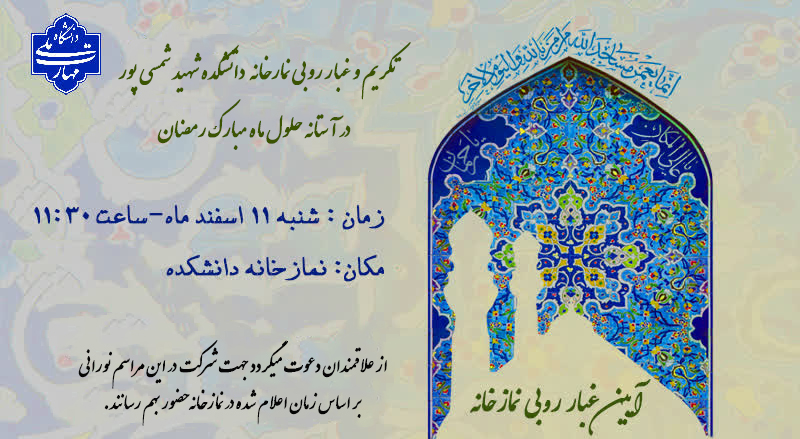 دانشگاه ملی مهارت
انما یعمر مساجد الله من آمن بالله والیوم الآخر
تکریم و غبار روبی نمازخانه دانشکده شهید شمسی پور
در آستانه حلول ماه مبارک رمضان
زمان : شنبه ۱۱ اسفند ماه-ساعت ۱۱:۳۰
مکان: نمازخانه دانشکده
از علاقمندان دعوت میگردد جهت شرکت در این مراسم نورانی
بر اساس زمان اعلام شده در نمازخانه حضور بهم رسانند.
آیین غبار روبی نمازخانه